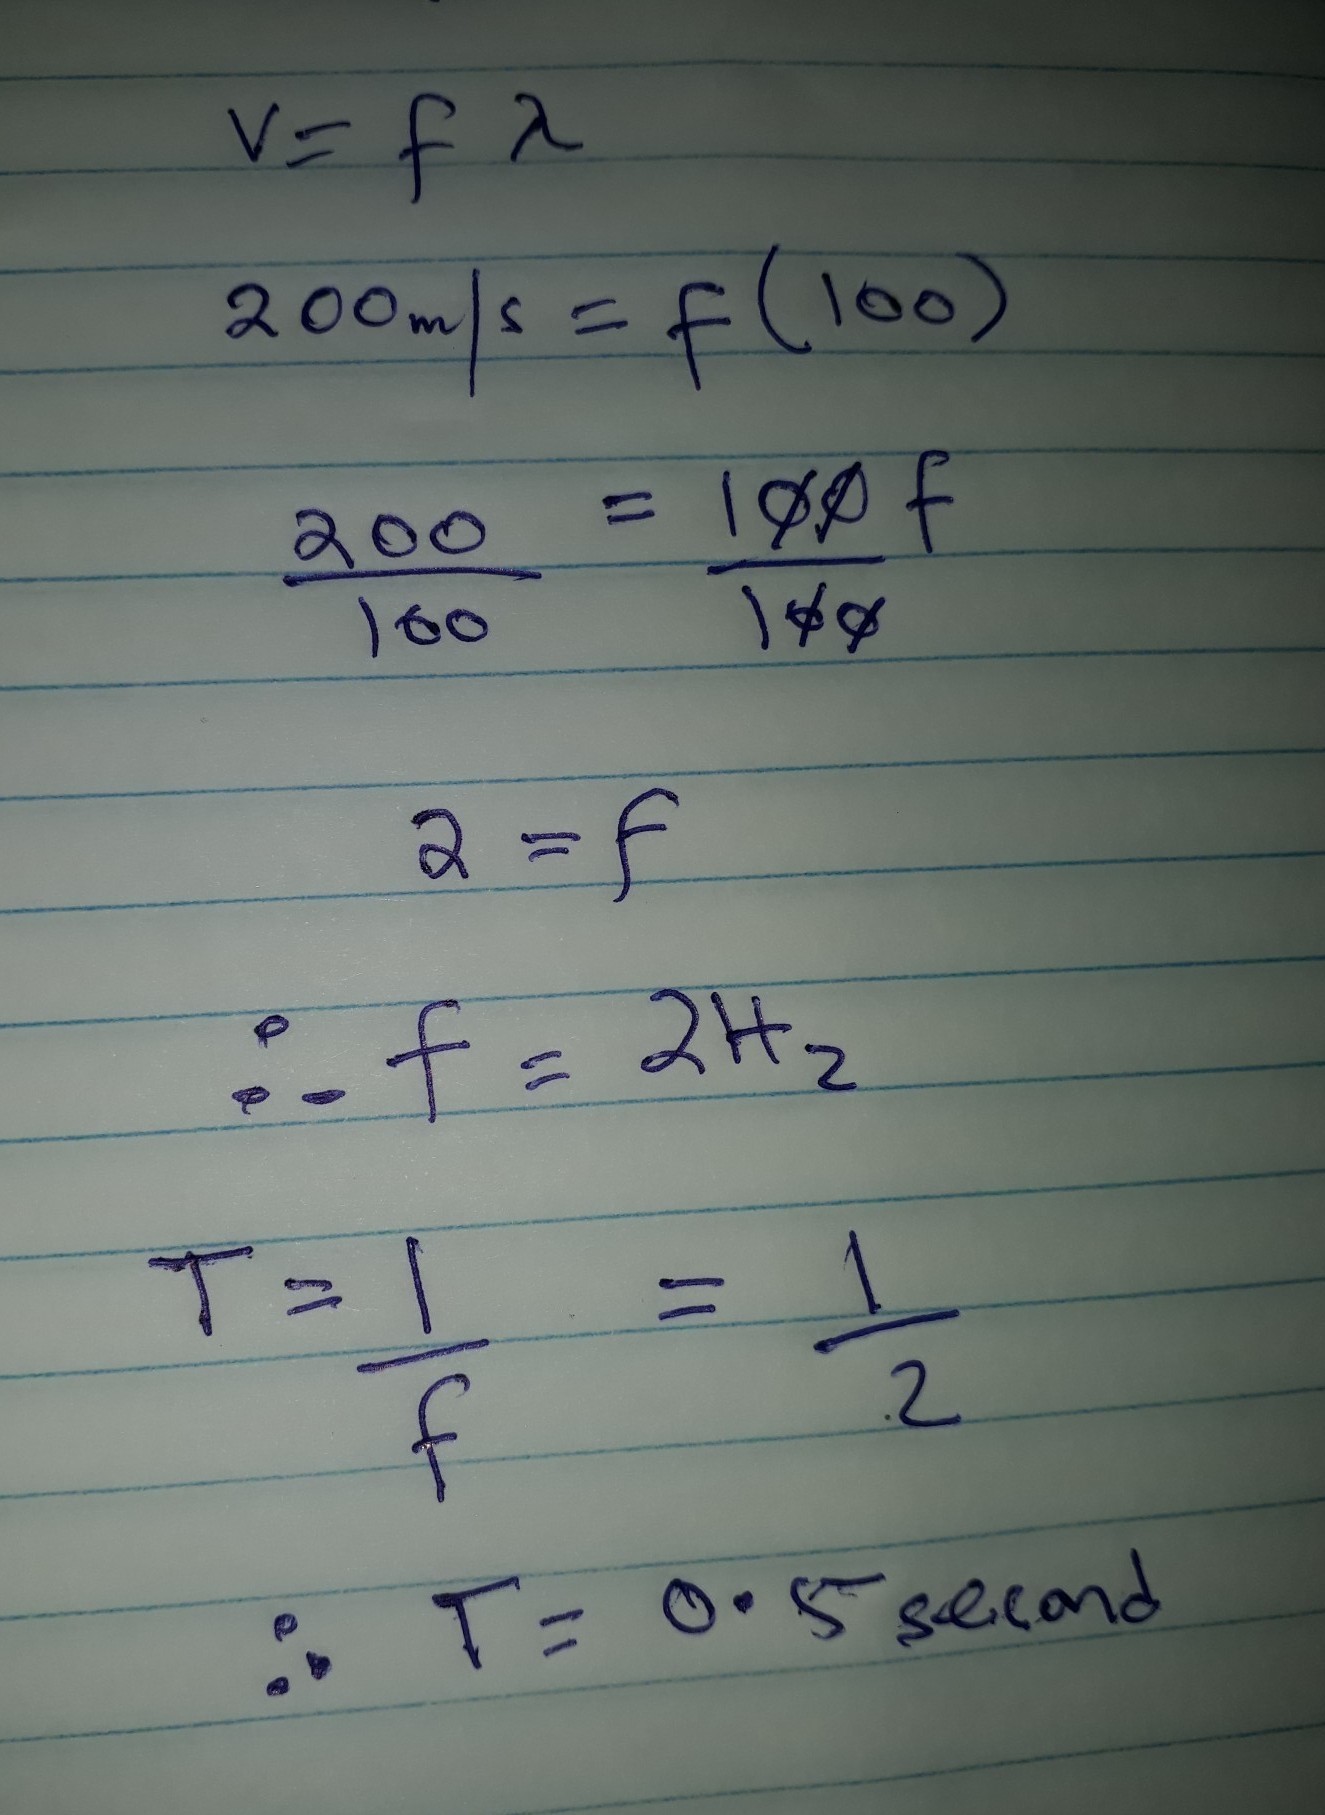 V = f λ
200m/s = f(100)
200/100 = 100 f/100
2 = f
∴ f = 2Hz
T = 1/f = 1/2
∴ T = 0.5 second